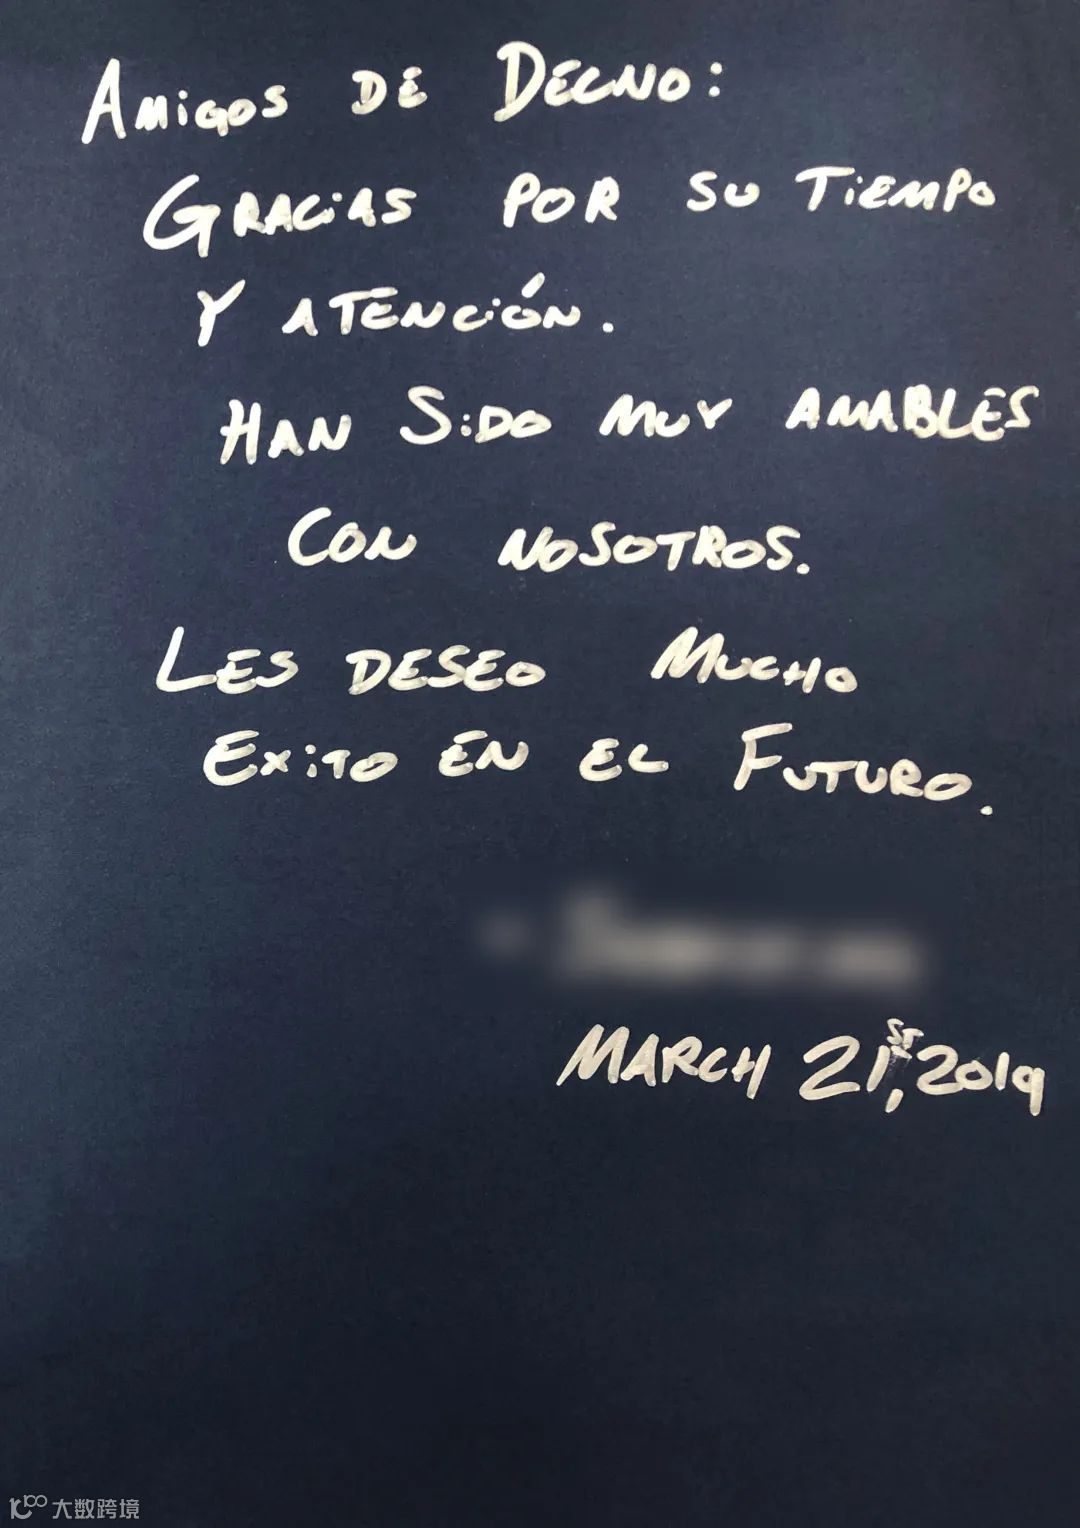 AMiGOS DE DECNO:
GRACiAS POR SU TiEMPO
Y ATENCiÓN.
HAN SiDO MUY AMABLES
CON NOSOTROS.
LES DESEO MUCHO
EXiTO EN EL FUTURO.
MARCH 21ST, 2019
大数跨境